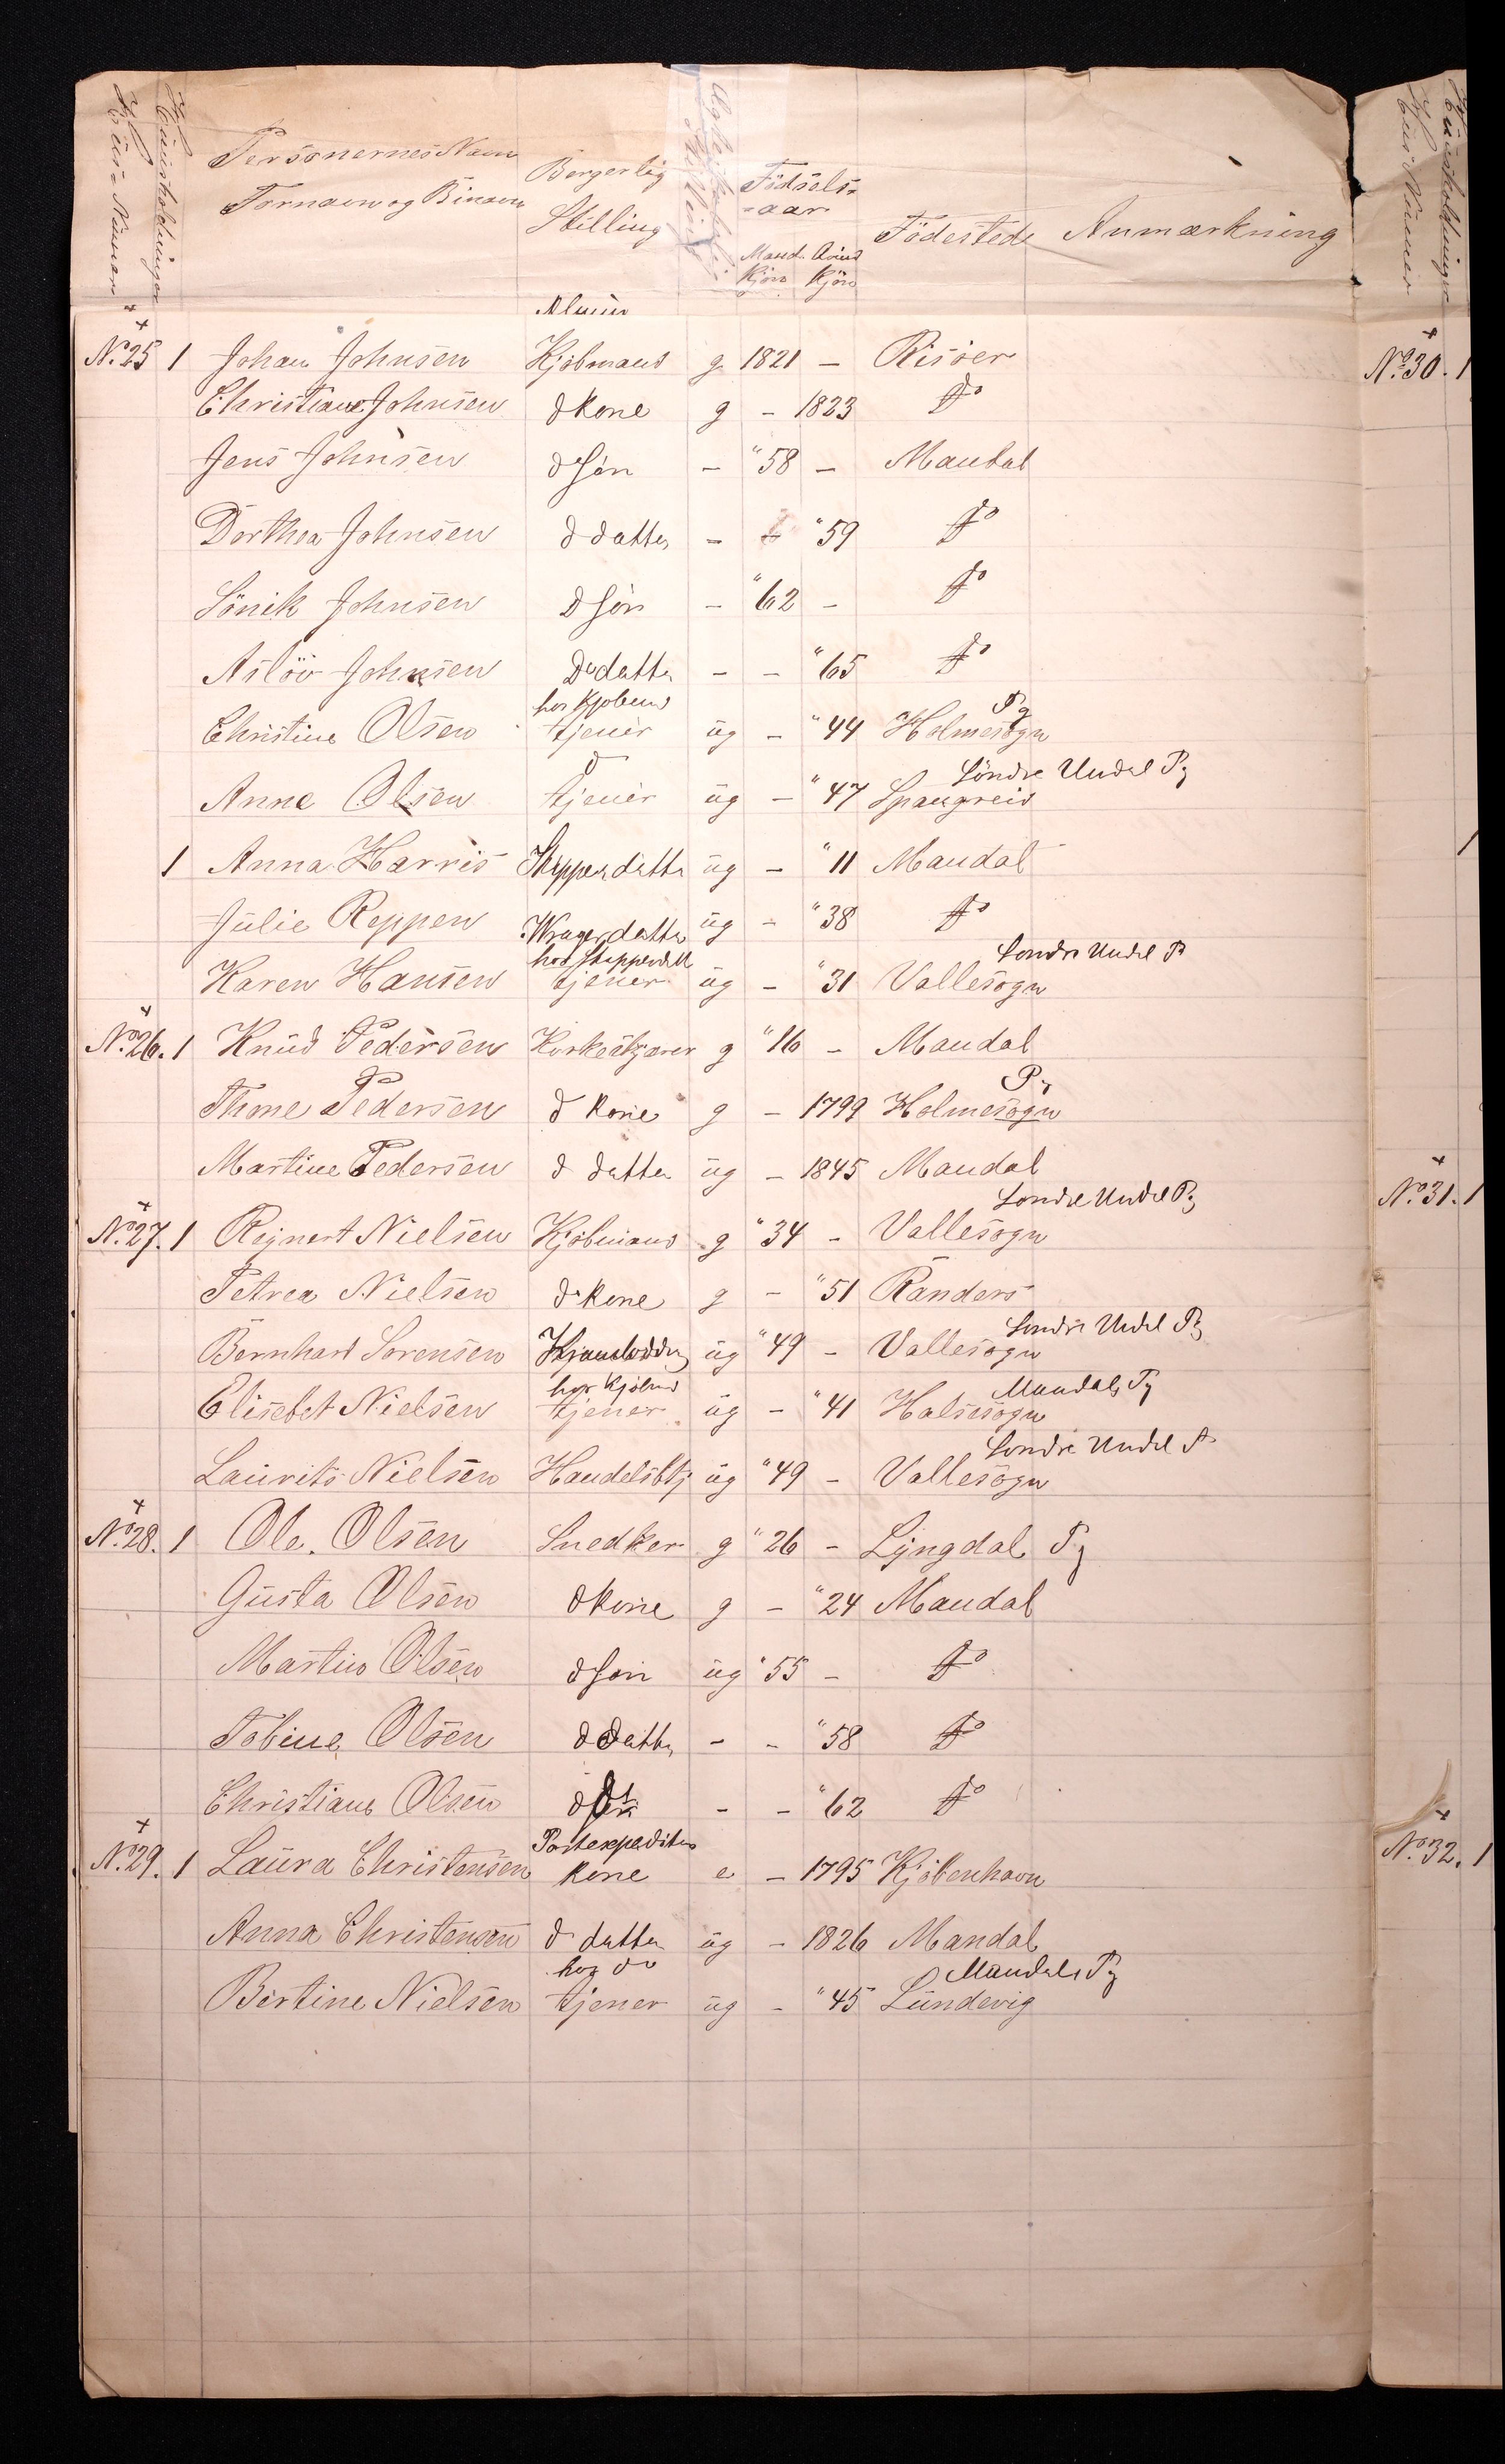 Huus-Numer
Huusholdninger
Personernes Navn
Fornavn og Binavn
Borgerlig
Stilling
Födsels-
-aar
Mand. Qvind
Kjön Kjön
Födested Anmærkning
Huusholdninger
Huus Numer
No. 25 1 Johan Johnsen Kjöbmand g 1821 – Risöer
Christiane Johnsen d kone g – 1823 Do
Jens Johnsen d Sön – "58 – Mandal
Dorthea Johnsen d datter – – "59 Do
Sönik Johnsen D Sön – "62 – Do
Aslöv Johnsen Do datter – – "65 Do
hos Kjöbmd Pg
Christine Olsen tjener ug – "44 Holmesogn
d Söndre Undal Pg
Anne Olsen tjener ug – "47 Spangreid
1 Anna Harris Skipperdatter ug – "11 Mandal
Julie Reppen Wragerdatter ug – "38 Do
hos Skipperdatt Söndre Undal P
Karen Hansen tjener ug – "31 Vallesogn
No. 26. 1 Knud Pedersen Korkeskjærer g "16 – Mandal
Pg
Thone Pedersen d kone g – 1799 Holmesogn
Martine Pedersen d datter ug – 1845 Mandal
Söndre Undal Pg
No. 27. 1 Rejnert Nielsen Kjöbmand g "34 – Vallesogn
Petrea Nielsen d kone g – "51 Randers
Söndre Undal Pg
Bernhard Sorensen ug "49 – Vallesogn
hos Kjöbmd Mandals Pg
Elisebet Nielsen tjener ug – "41 Halsesogn
Söndre Undal P
Laurits Nielsen Handelsbtj ug "49 – Vallesogn
No. 28. 1 Ole. Olsen Snedker g "26 – Lyngdal Pg
Gusta Olsen d kone g – "24 Mandal
Martin Olsen d Sön ug "55 – Do
Tobine Olsen d datter – – "58 Do
Christiane Olsen d – – "62 Do
Postexpeditør
No. 29. 1 Laura Christensen kone e – 1795 Kjöbenhavn
Anna Christensen d datter ug – 1826 Mandal
hos do Mandals Pg
Bertine Nielsen tjener ug – "45 Lundevig
No. 30. 1
1
No. 31. 1
No. 32. 1